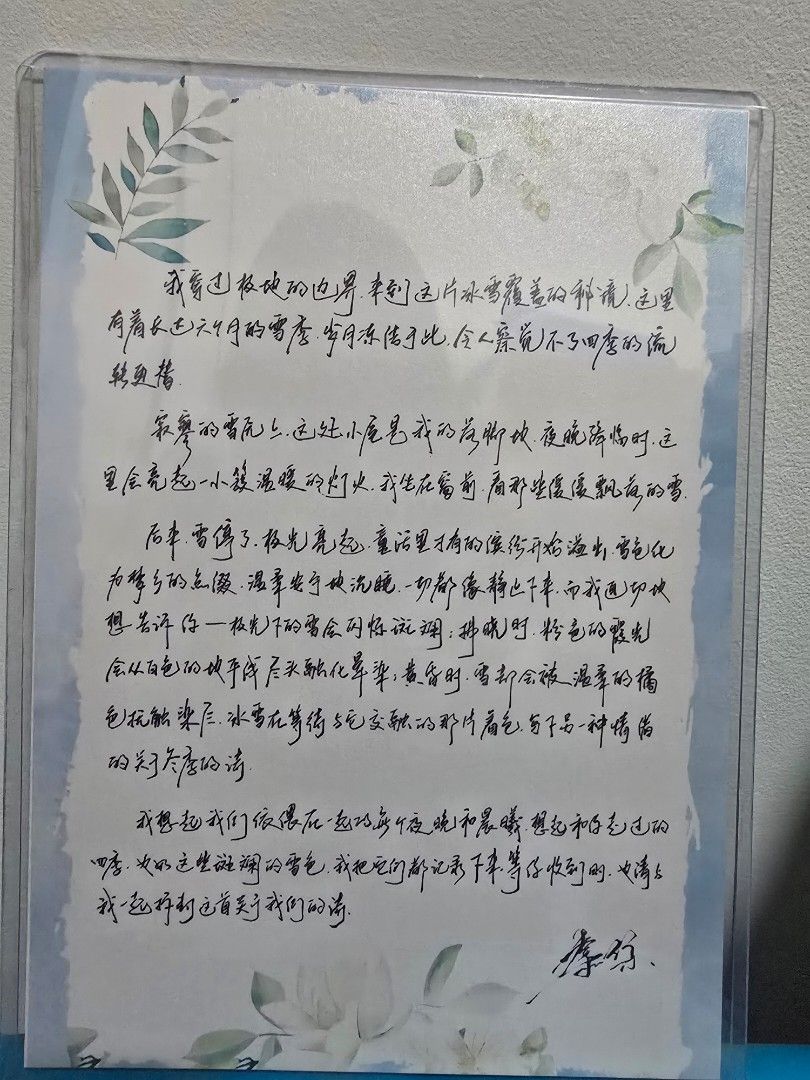 我穿过极地的边界，来到这片冰雪覆盖的秘境，这里
有着长达六个月的雪季，岁月冻结于此，令人察觉不了四季的流
转更替。
寂寥的雪原上，这处小屋是我的落脚地，夜晚降临时，这
里会亮起一小簇温暖的灯火，我坐在窗前，看那些缓缓飘落的雪。
后来，雪停了，极光亮起，童话里才有的缤纷开始溢出，雪色化
为梦乡的点缀，温柔安于块沉睡，一切都像静止下来，而我迫切地
想告诉你——极光下的雪会闪烁斑斓；拂晓时，粉色的霞光
会从白色的地平线尽头融化晕染；黄昏时，雪却会被温柔的橘
色抚触染尽，冰雪在等待与它交融的那片着色，写下另一种情
的关于冬季的诗。
我想起我们依偎在一起的每个夜晚和晨曦，想起和你走过的
四季，也如这些斑斓的雪色，我把它们都记录下来，等你收到时，也请与
我一起拆封这首关于我们的诗。